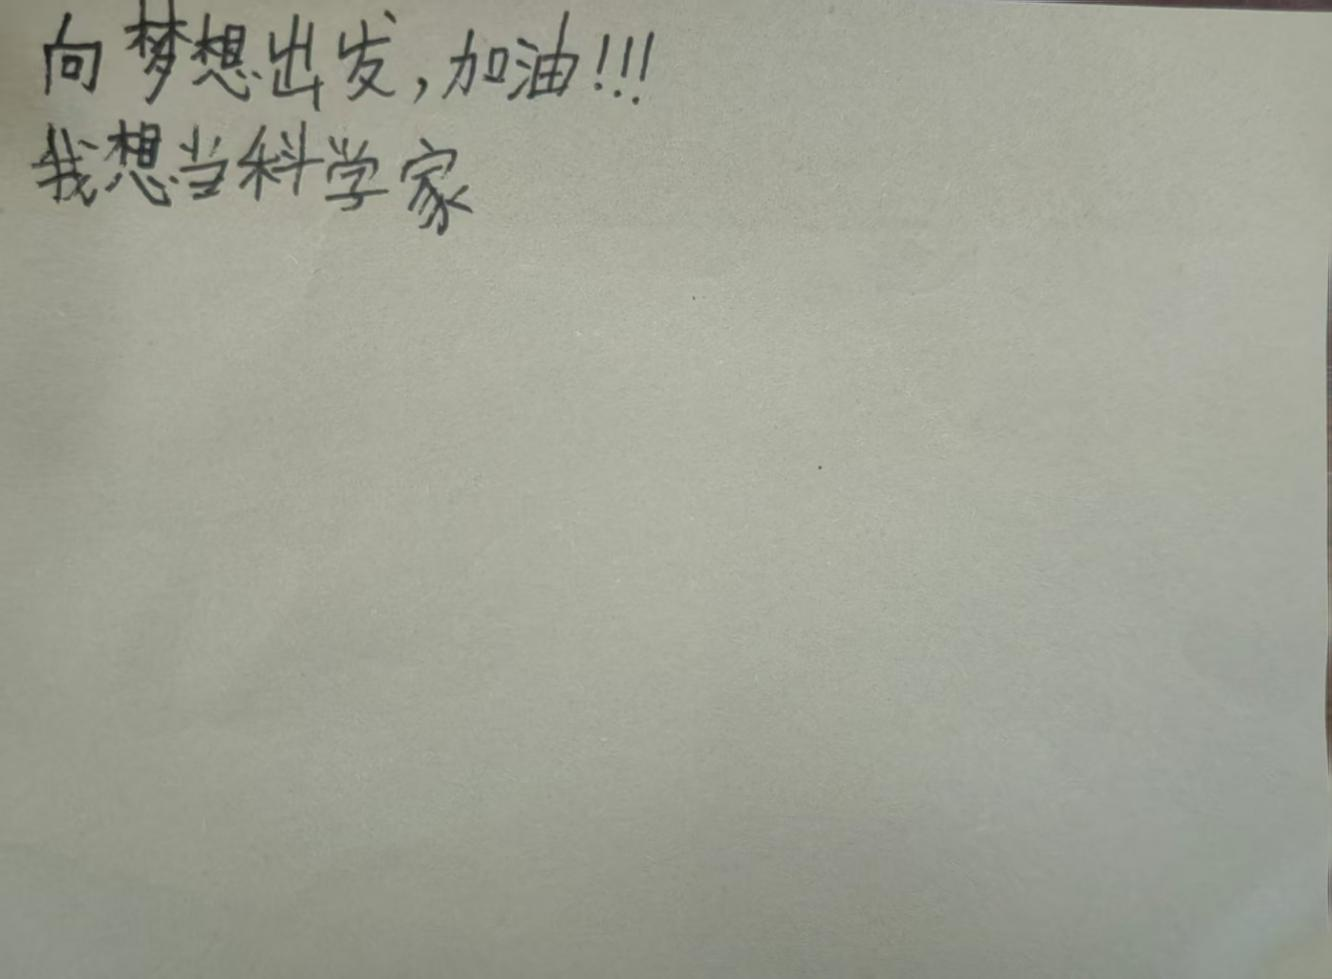 向梦想出发,加油!!!
我想当科学家